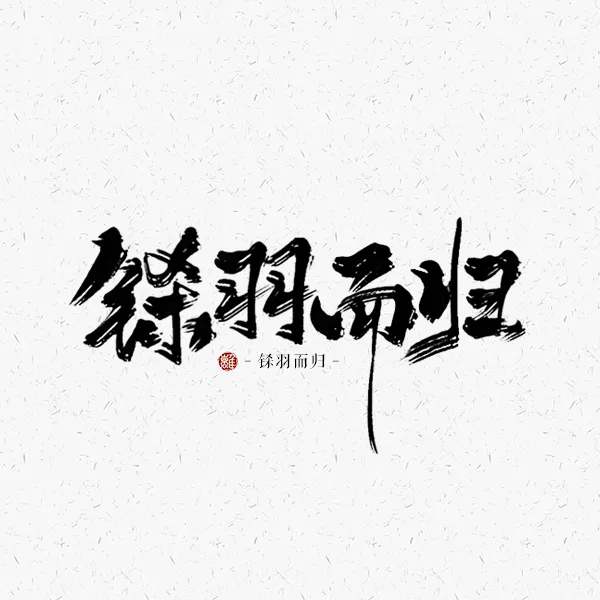 铩羽而归
- 铩羽而归 -